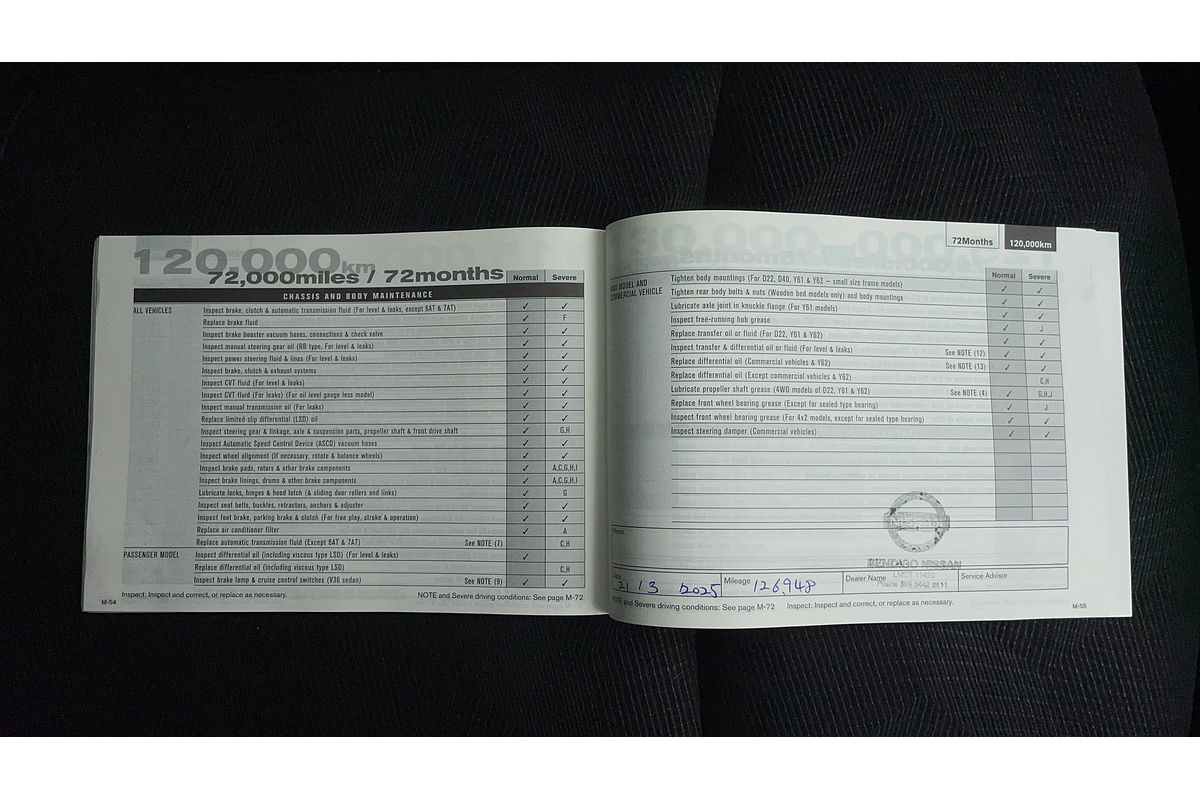 120,000km
72,000miles / 72months
Normal Severe
CHASSIS AND BODY MAINTENANCE
ALL VEHICLES Inspect brake, clutch & automatic transmission fluid (For level & leaks, except 6AT & 7AT) ✓ ✓
Replace brake fluid ✓ F
Inspect brake booster vacuum hoses, connections & check valve ✓ ✓
Inspect manual steering gear oil (RB type, For level & leaks) ✓ ✓
Inspect power steering fluid & lines (For level & leaks) ✓ ✓
Inspect brake, clutch & exhaust systems ✓ ✓
Inspect CVT fluid (For level & leaks) ✓ ✓
Inspect CVT fluid (For leaks) (For oil level gauge less model) ✓ ✓
Inspect manual transmission oil (For leaks) ✓ ✓
Replace limited-slip differential (LSD) oil ✓ ✓
Inspect steering gear & linkage, axle & suspension parts, propeller shaft & front drive shaft ✓ G,H
Inspect Automatic Speed Control Device (ASCD) vacuum hoses ✓ ✓
Inspect wheel alignment (If necessary, rotate & balance wheels) ✓ ✓
Inspect brake pads, rotors & other brake components ✓ A,C,G,H,I
Inspect brake linings, drums & other brake components ✓ A,C,G,H,I
Lubricate locks, hinges & hood latch (& sliding door rollers and links) ✓ G
Inspect seat belts, buckles, retractors, anchors & adjuster ✓ ✓
Inspect foot brake, parking brake & clutch (For free play, stroke & operation) ✓ ✓
Replace air conditioner filter ✓ A
Replace automatic transmission fluid (Except 6AT & 7AT) See NOTE (7) C,H
PASSENGER MODEL Inspect differential oil (including viscous type LSD) (For level & leaks) ✓
Replace differential oil (including viscous type LSD) C,H
Inspect brake lamp & cruise control switches (V36 sedan) See NOTE (9) ✓ ✓
Inspect: Inspect and correct, or replace as necessary. NOTE and Severe driving conditions: See page M-72
M-54
72Months 120,000km
Normal Severe
4WD MODEL AND
COMMERCIAL VEHICLE
Tighten body mountings (For D22, D40, Y61 & Y62 – small size frame models) ✓ ✓
Tighten rear body bolts & nuts (Wooden bed models only) and body mountings ✓ ✓
Lubricate axle joint in knuckle flange (For Y61 models) ✓ ✓
Inspect free-running hub grease ✓ J
Replace transfer oil or fluid (For D22, Y61 & Y62) ✓ ✓
Inspect transfer & differential oil or fluid (For level & leaks) See NOTE (12) ✓ ✓
Replace differential oil (Commercial vehicles & Y62) See NOTE (13) ✓ ✓
Replace differential oil (Except commercial vehicles & Y62) C,H
Lubricate propeller shaft grease (4WD models of D22, Y61 & Y62) See NOTE (4) ✓ G,H,J
Replace front wheel bearing grease (Except for sealed type bearing) ✓ J
Inspect front wheel bearing grease (For 4x2 models, except for sealed type bearing) ✓ ✓
Inspect steering damper (Commercial vehicles) ✓ ✓
Memo
NISSAN
BENDIGO NISSAN
LMCT 11420
Date 21 / 3 / 2025 Mileage 126,948 Dealer Name Service Advisor
NOTE and Severe driving conditions: See page M-72 Inspect: Inspect and correct, or replace as necessary.
M-55